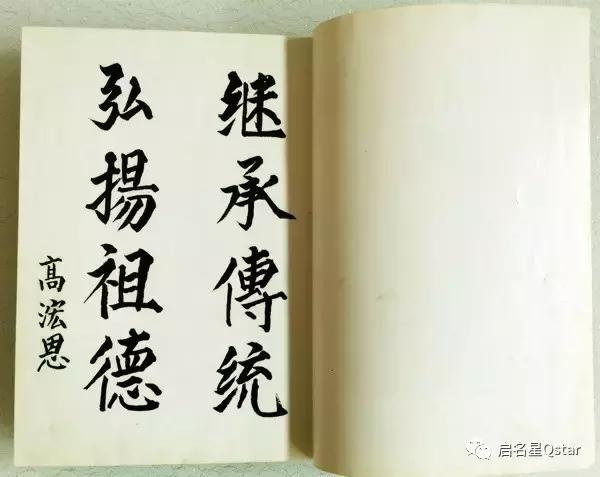 继承傳统
弘揚祖德
高浤思
启名星Qstar